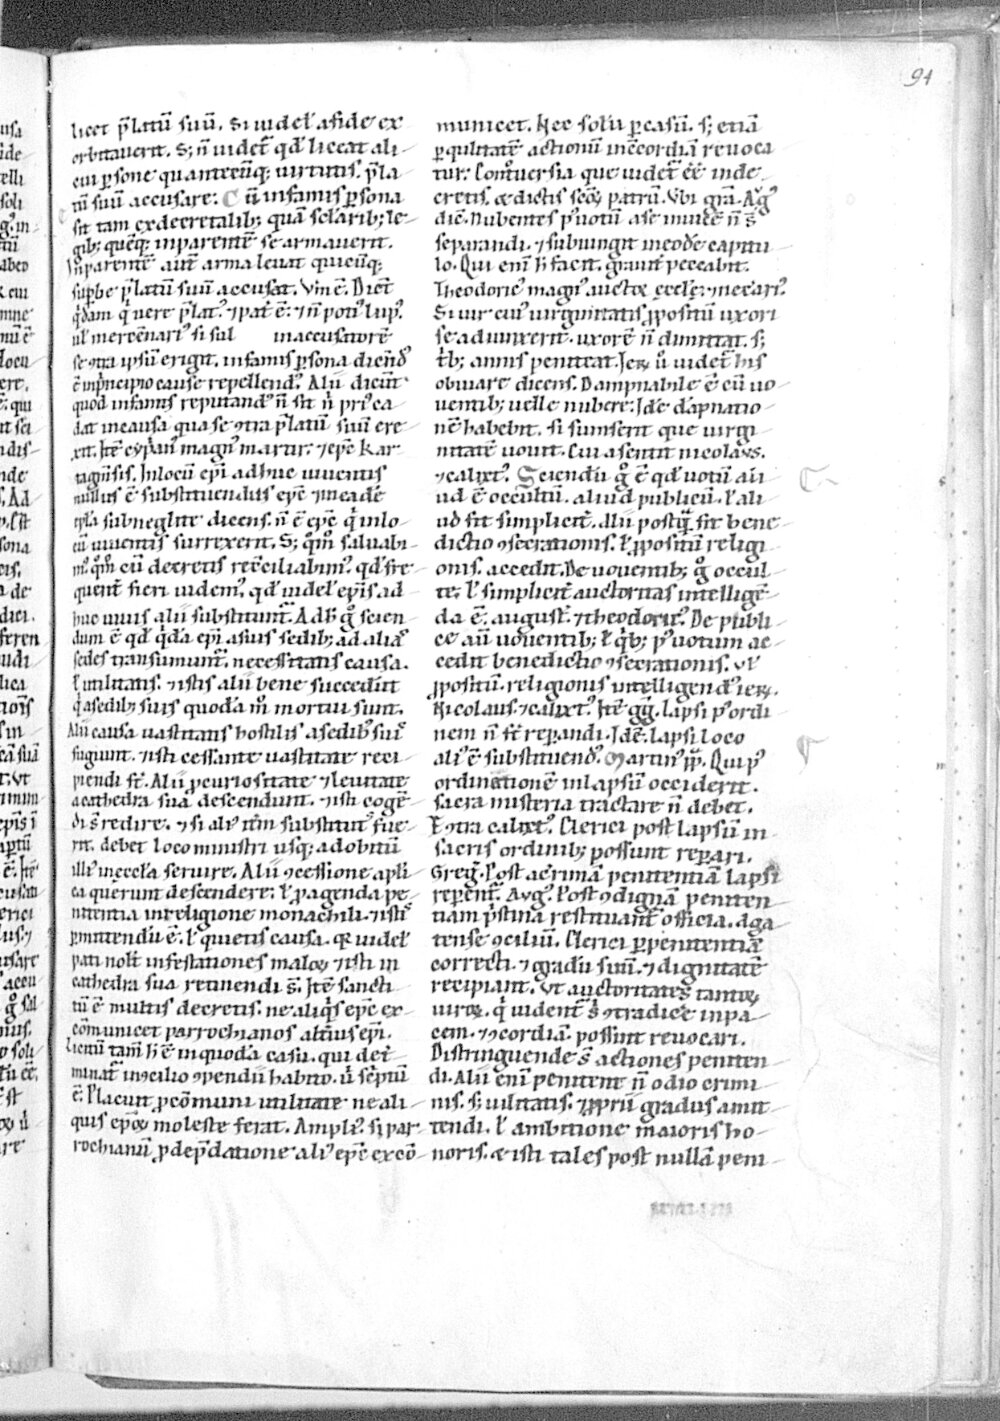 94
licet p̄latū suū. Si uidel' a fide ex
orbitauerit. S; n̄ uidet̄ qd' liceat ali
cui ꝑsone quantecūq; uirtutis. p̄la
tū suū accusare. Cū infamis ꝑsona
sit tam ex decretalib; quā sclarib; le
gib; quēq; inparentē se armauerit.
Inparentē aut̄ arma leuat quicūq;
supbe p̄latū suū accusat. Vn̄ ē. Dic̄t
q'dam q' uere p̄lat' ⁊ pat̄ ē. ⁊ n̄ poti' lup'.
ul' mercēnari' si sul in accusatorē
se ꝯtra ipsū erigit. infamis ꝑsona dicēd'
ē inp'ncipio cause repellend'. Alii dicūt
quod infamis reputand' n̄ sit n' pri' ca
dat in causa qua se ꝯtra p̄latū suū ere
xit. Itē cyp'an' magn' martir. ⁊ epc̄ Kar
taginsis. In locū ep̄i adhuc uiuentis
nullus ē substituendus epc̄ ⁊ in eadē
ep̄la subneglite dicens. n̄ ē epc̄ q' in lo
cū uiuentis surrexerit. S; qm̄ saluabi
m' qm̄ cū decretis recc̄iliabim'. qd' fre
quent̄ fieri uidem'. qd' uidel' ep̄is ad
huc uiuis alii substituunt̄. Ad h' g° scien
dum ē qd' q'da ep̄i a suis sedib; ad alias
sedes transumunt̄. necessitatis causa.
l' utilitatis. ⁊ istis alii bene succedūt
q' a sedib; suis quodā m̄ mortui sunt.
Alii causa uastitatis hostilis a sedib; suis
fugiunt. ⁊ isti cessante uastitate reci
piendi st̄. Alii ꝓ curiositate ⁊ leuitate
a cathedra sua descendunt. ⁊ isti cogē
di s̄ redire. ⁊ si ali' itm̄ substitut' fue
rit. debet loco ministri usq; ad obitū
illi' in eccl'a seruire. Alii ꝯcessione apl'i
ca querunt descendere. l' ꝓ agenda pe
nitentia in religione monachili. ⁊ isti
ꝑmittendū ē. l' quietis causa. qr uidel'
pati nolt̄ infestationes maloꝝ ⁊ isti in
cathedra sua retinendi s̄. Itē sancti
tū ē multis decretis. ne aliq's epc̄ ex
cōmunicet parrochianos alti' ep̄i.
Licitū tam̄ h' ē in quodā casu. qui det̄
minat̄ in ꝯcilio ꝯpendii habito. u' sc'ptū
ē. Placuit ꝓ cōmuni utilitate ne ali
quis ep̄oꝝ moleste ferat. Ampli'. si par
rochianū ꝓ dep̄datione ali' epc̄ excō
municet. Hec solū ꝑ casū. s; etiā
ꝑ qualitatē actionū in ꝯcordiā reuoca
tur. Cont'uersia que uidet̄ eē in de
cretis. ⁊ dictis scōꝝ patrū. Vbi gr̄a. Aug'
dic̄. Nubentes p' uotū a se inuicē n̄ s̄
separandi. ⁊ subiungit in eodē capitu
lo. Qui enī h' facit. grauit̄ peccabit.
Theodoric' magn' auctor eccl'e. ⁊ necari'.
Si uir cui' uirginitatis ꝓpositū uxori
se adiunxerit. uxorē n̄ dimittat. s;
t'b; annis peniteat. Ier. u° uidet̄ his
obuiare dicens. Dampnabile ē eū uo
uentib; uelle nubere. Idē dāpnatio
nē habebit. si sumserit que uirgi
nitatē uouit. Cui asentit nicolaus.
⁊ calixt'. Sciendū g° ē qd' uotū ali
ud ē occultū. aliud publicū. l' ali
ud fit simplicit̄. aliud postq̄ fit bene
dictio ꝯsecrationis. l' ꝓpositū religi
onis accedit. De uouentib; g° occul
te. l' simplicit̄ auctoritas intelligē
da ē. august'. ⁊ theodoric'. De publi
ce aū uouentib; l' q'b; p' uotum ac
cedit benedictio ꝯsecrationis. ul'
ꝓpositū religionis intelligend' ier.
Nicolaus. ⁊ calixt'. Itē gg̅. lapsi p' ordi
nem n̄ st̄ reꝑandi. Idē. lapsi loco
ali' ē substituend'. Martin' pp̄. Qui p'
ordinationē in lapsū occiderit.
sacra misteria tractare n̄ debet.
E ꝯtra calixt'. Clerici post lapsū in
sacris ordinib; possunt reꝑari.
Greg̅. Post acrimā penitentiā lapsi
reꝑent̄. Aug'. Post ꝯdignā peniten
tiam p'stina restituant̄ officia. aga
tense ꝯciliū. Clerici ꝑ penitentiā
correcti. ⁊ gradū suū. ⁊ dignitatē
recipiant. Vt auctoritates tantoꝝ
uiroꝝ. q' uident̄ s' ꝯtradicē in pa
cem. ⁊ ꝯcordiā. possint reuocari.
Distinguende s̄ actiones peniten
di. Alii enī penitent n̄ odio crimi
nis. s; uilitatis. ⁊ ꝓprii gradus amit
tendi. l' ambitione maioris ho
noris. ⁊ isti tales post nullā peni